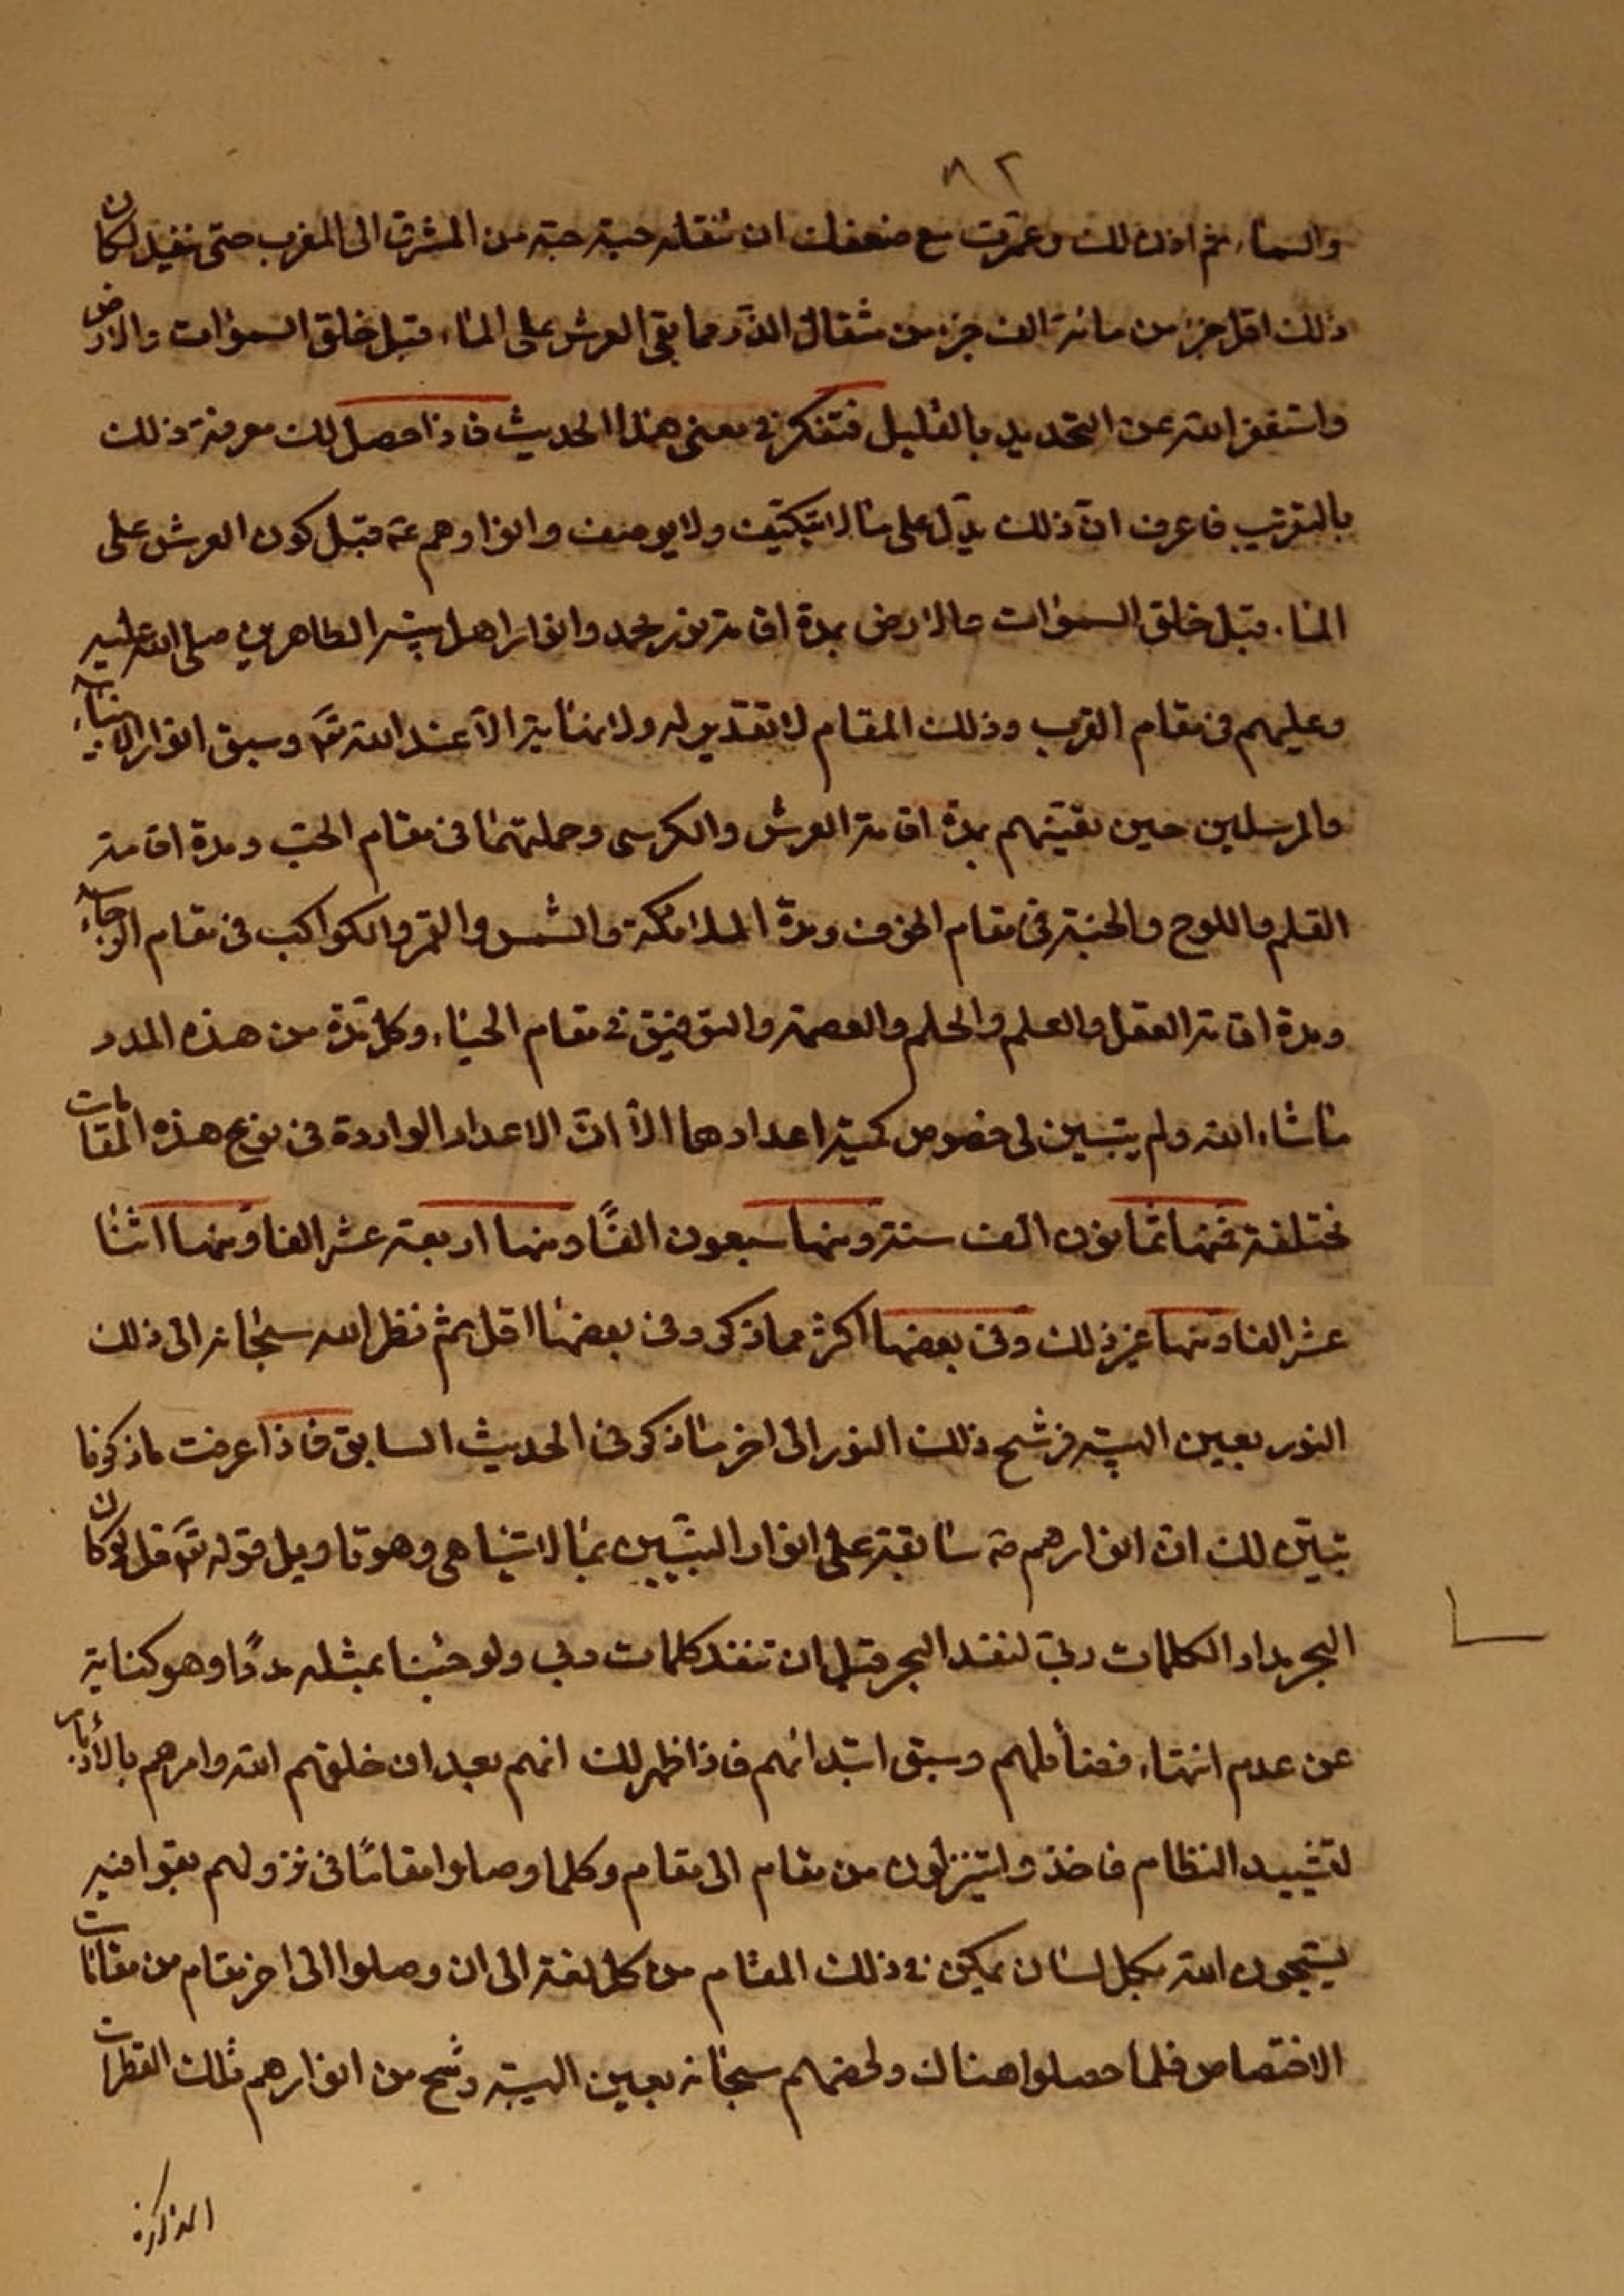 ٨٢
والسماء ثم اذن لك وعمرت مع ضعفك ان تنقله حبة حبة من المشرق الى المغرب حتى ينفد لكان
ذلك اقل جزء من مائة الف جزء من مثقال الذر مما بقى العرش على الماء قبل خلق السموات والارض
واستغفر الله عن التحديد بالقليل فتفكر في معنى هذا الحديث فاذا حصل لك معرفة ذلك
بالتقريب فاعرف انّ ذلك يدلّ على ما لا يتكيّف ولا يوصف وانوارهم عـ قبل كون العرش على
الماء قبل خلق السموات والارض بمدة اقامة نور محمد وانوار اهل بيته الطاهرين صلى الله عليه
وعليهم في مقام القرب وذلك المقام لا تقدير له ولا نهاية الّا عند الله تعـ وسبق انوار الانبياء
والمرسلين حين بقيتهم بمدة اقامة العرش والكرسى وحملتهما في مقام الحب ومدة اقامة
القلم واللوح والجنة في مقام الخوف ومدة الملائكة والشمس والقمر والكواكب في مقام الرجاء
ومدة اقامة العقل والعلم والحلم والعصمة والتوفيق في مقام الحياء وكل مدة من هذه المدد
ما شاء الله ولم يتبين لى خصوص كمية اعدادها الّا انّ الاعداد الواردة في نوع هذه المقامات
مختلفة فمنها ثمانون الف سنة ومنها سبعون الفًا ومنها اربعة عشر الفا ومنها اثنا
عشر الفا ومنها غير ذلك وفى بعضها اكثر مما ذكر وفى بعضها اقل ثم نظر الله سبحانه الى ذلك
النور بعين الهيبة فرشح ذلك النور الى اخر ما ذكر في الحديث السابق فاذا عرفت ما ذكرنا
تبيّن لك ان انوارهم صـ سابقة على انوار النبيّين بما لا يتناهى وهو تاويل قوله تعـ قل لو كان
البحر مدادا لكلمات ربّي لنفد البحر قبل ان تنفد كلمات ربى ولو جئنا بمثله مددًا وهو كناية
عن عدم انتهاء فضائلهم وسبق ابتدائهم فاذا ظهر لك انهم بعد ان خلقهم الله وامرهم بالأدبار
لتشييد النظام فاخذوا يتنزلون من مقام الى مقام وكلما وصلوا مقامًا في نزولهم بقوا فيه
يسبّحون الله بكل لسان يمكن في ذلك المقام من كل لغة الى ان وصلوا الى اخر مقام من مقامات
الاختصاص فلما حصلوا هناك ولحظهم سبحانه بعين الهيبة رشح من انوارهم تلك القطرات
المذكورة